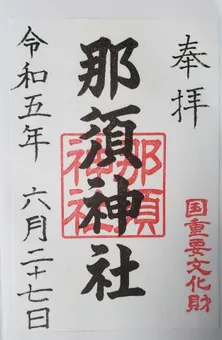 奉拝
国重要文化財
那須神社
那須
神社
令和五年 六月二十七日